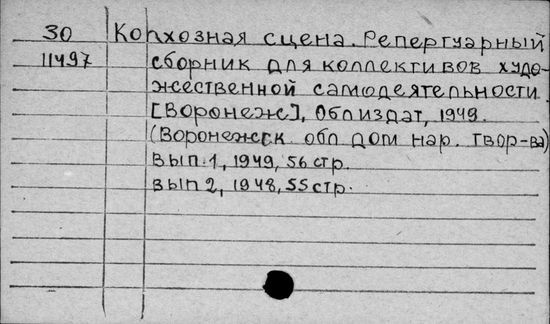 30 Колхозная сцена. Репертуарный
11497 сборник для коллективов худо-
жественной самодеятельности.
[Воронеж], Облиздат, 1949.
(Воронежск. обл дом нар. твор-ва)
Вып. 1, 1949, 56 стр.
вып 2, 1948, 55 стр.